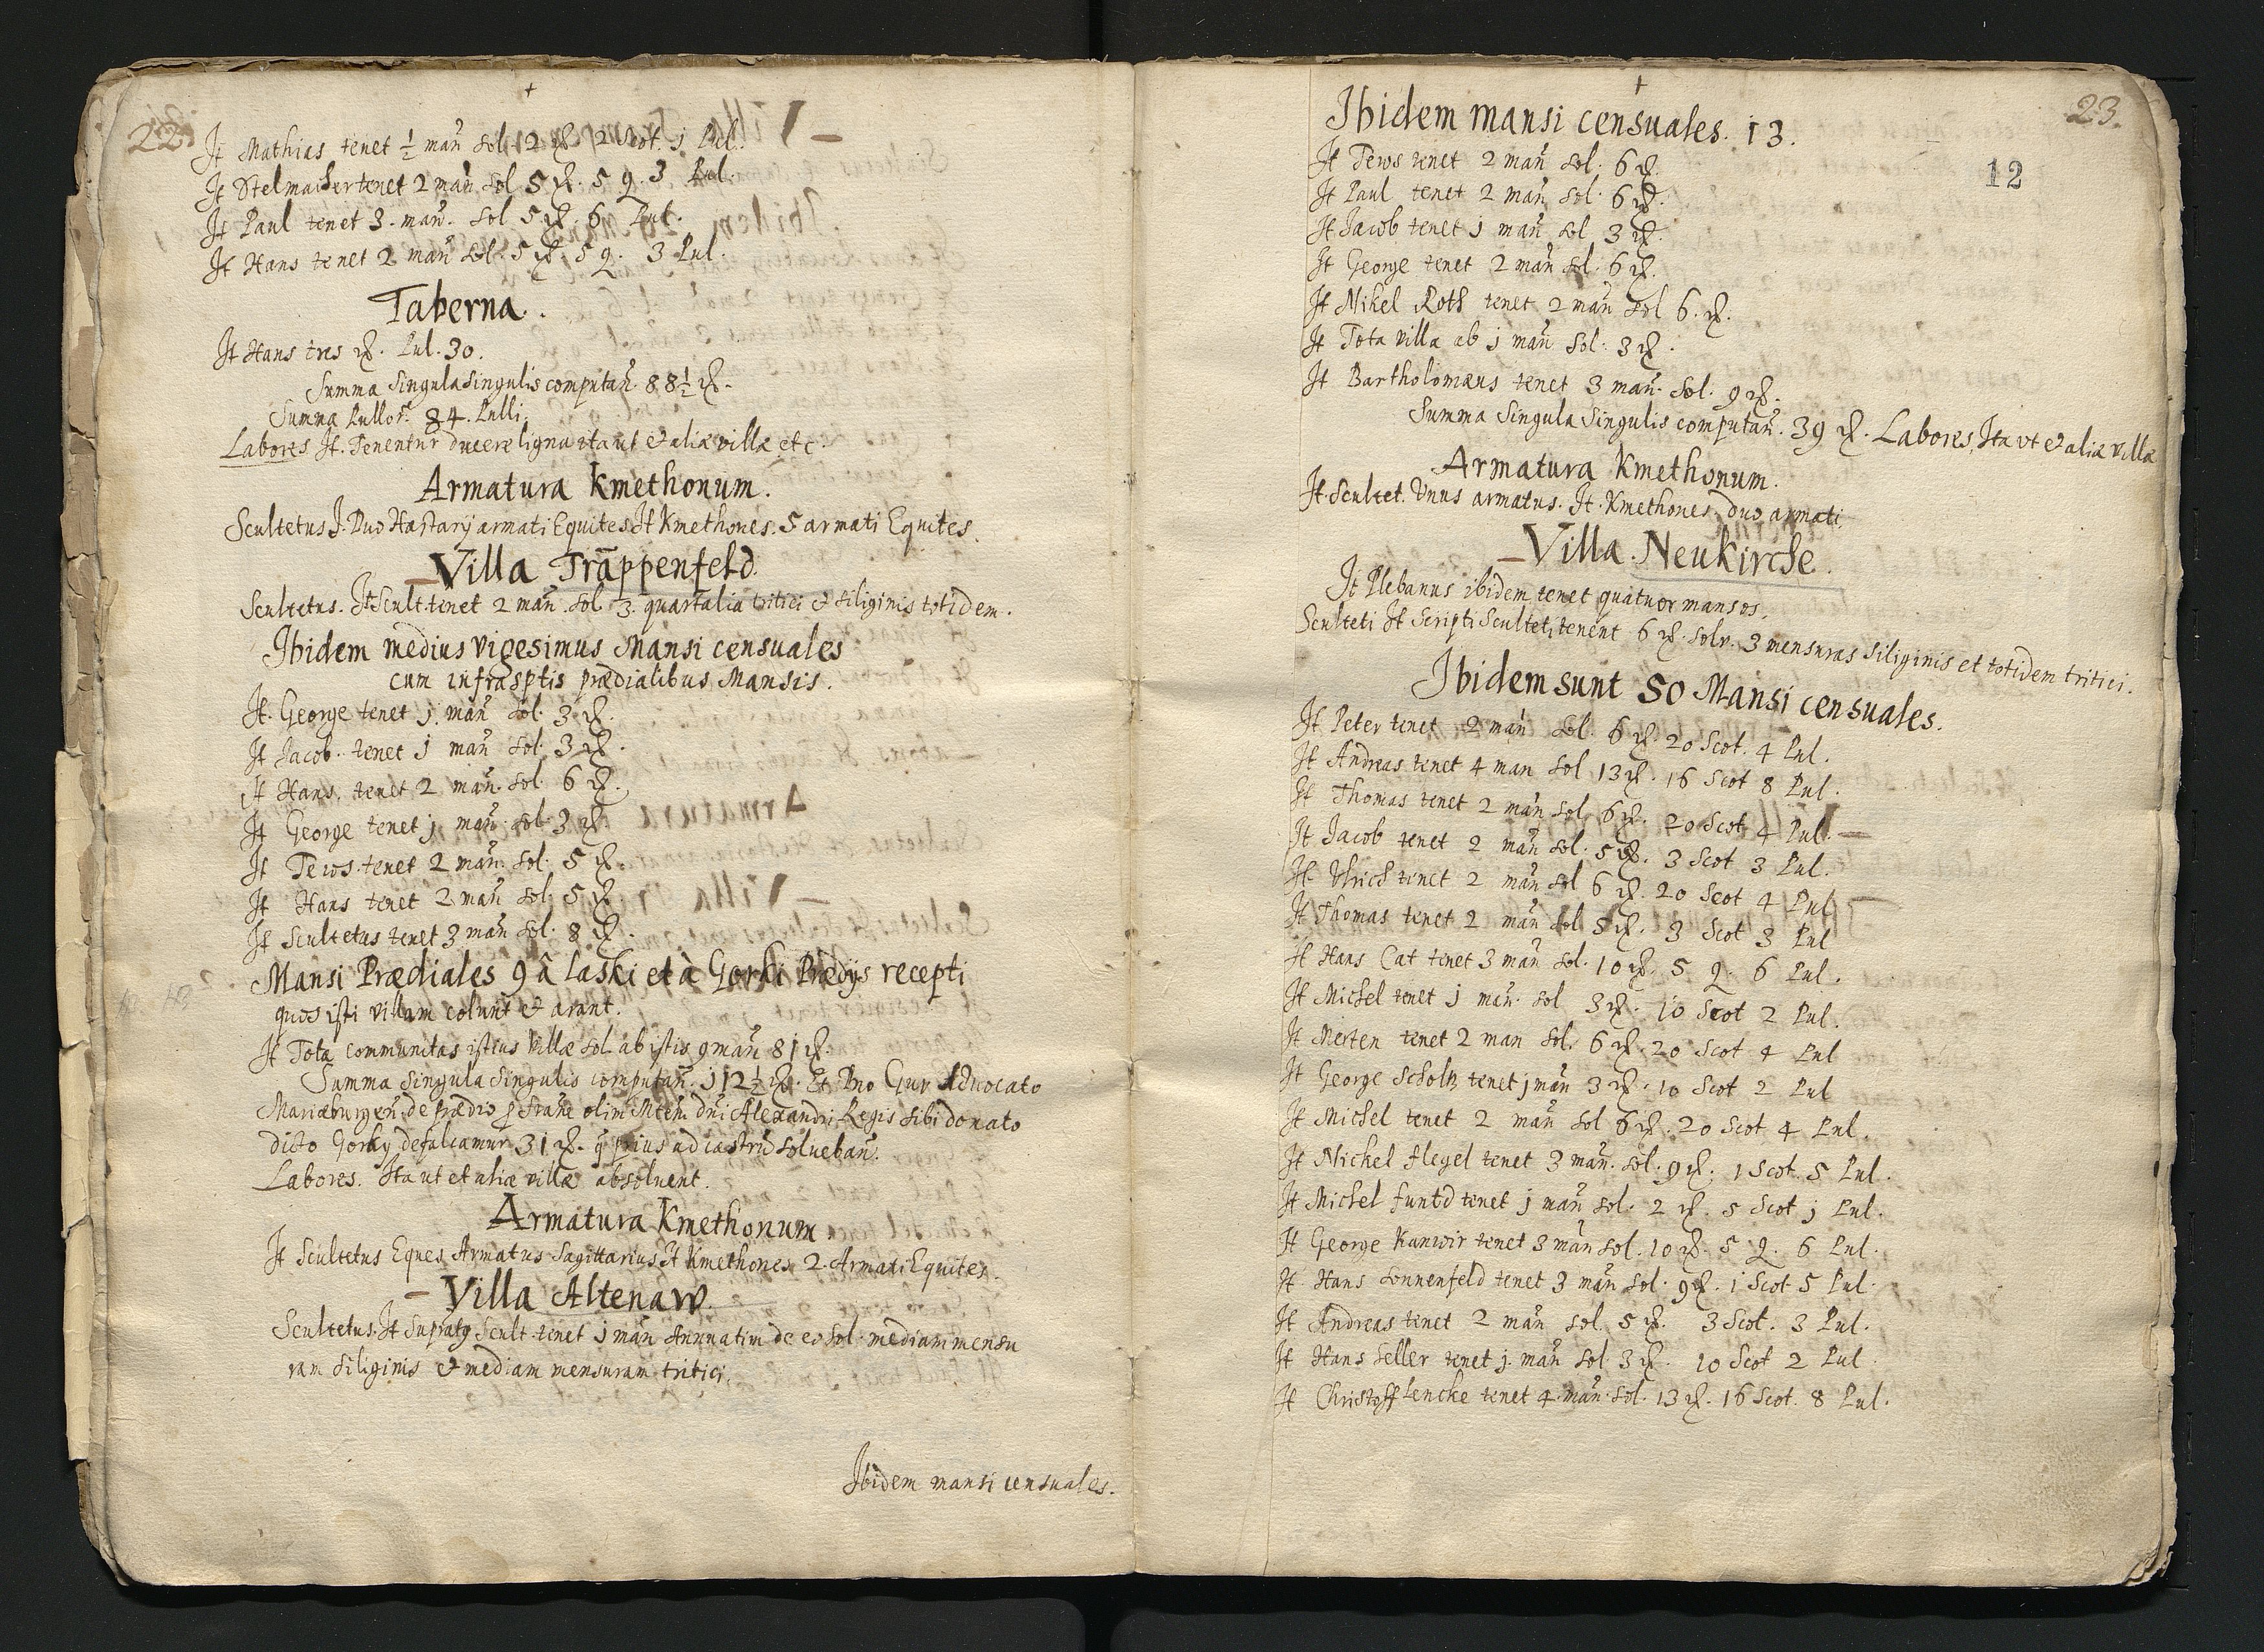 22.
It Mathias tenet ½ mañ sol. 2 ℳ. 2 Scot. j Pul.
It Stelmacher tenet 2 mañ sol 5 ℳ. 5 q. 3 Pul.
It Paul tenet 3. mañ. sol 5 ℳ. 6 Pul.
It Hans tenet 2 mañ sol. 5 ℳ. 5 q. 3 Pul.
Taberna.
It Hans tres ℳ. Pul. 30.
Summa singula singulis computañ. 88½ ℳ.
Summa Pullor. 84. Pulli.
Labores It. Tenentur ducere ligna ita ut et aliæ villæ etc.
Armatura Kmethonum.
Scultetus I. Duo Hastarÿ armati Equites. It Kmethones. 5 armati Equites.
Villa Trappenfeld.
Scultetus. It Scult tenet 2 mañ. sol. 3. quartalia tritici et siliginis totidem.
Ibidem medius vigesimus Mansi censuales
cum infrasptis prædialibus Mansis.
It. George tenet j. mañ sol. 3 ℳ.
It Jacob. tenet j mañ sol. 3 ℳ.
It Hans. tenet 2 mañ. sol 6 ℳ.
It George tenet j mañ. sol 3 ℳ
It Tews tenet 2 mañ. sol. 5 ℳ.
It Hans tenet 2 mañ sol. 5 ℳ.
It Scultetus tenet 3 mañ sol. 8 ℳ.
Mansi Prædiales 9 â Laski et à Gorki Prædÿs recepti
quos isti villam colunt et arant.
It Tota communitas istius villæ sol ab istis 9 mañ 81 ℳ.
Summa singula singulis computañ. 112½ ℳ. Et Dno Gur Advocato
Mariæburgeñ. de prædio olim dñi Alexandri Regis sibi donato
dicto Gorky defalcamur 31 ℳ. q̃ prius ad castrũ solvebañ.
Labores. Ita ut et aliæ villæ absolvent.
Armatura Kmethonum.
It Scultetus Eques Armatus Sagittarius It Kmethones 2. Armati Equites.
Villa Altenaw.
Scultetus. It Scult. tenet j mañ Annuatim de eo sol. mediam mensu
ram siliginis et mediam mensuram tritici.
Ibidem mansi censuales.
23.
12
Ibidem mansi censuales. 13.
It Tews tenet 2 mañ sol. 6 ℳ.
It Paul tenet 2 mañ sol. 6 ℳ.
It Jacob tenet j mañ sol 3 ℳ.
It George tenet 2 mañ sol. 6 ℳ.
It Nikel Roth tenet 2 mañ sol 6. ℳ.
It Tota villa ab j mañ sol. 3 ℳ.
It Bartholomæus tenet 3 mañ. sol. 9 ℳ.
Summa singula singulis computañ. 39 ℳ. Labores, Ita vt et aliæ villæ
Armatura Kmethonum.
It. Scultet. Unus armatus. It. Kmethones duo armati.
Villa. Neukirche.
It Plebanus ibidem tenet quatuor mansos.
Sculteti It Scripti Sculteti tenent 6 ℳ. solv. 3 mensuras siliginis et totidem tritici.
Ibidem sunt 50 Mansi censuales.
It Peter tenet 2 mañ sol. 6 ℳ. 20 Scot. 4 Pul.
It Andreas tenet 4 man sol 13 ℳ. 16 Scot 8 Pul.
It Thomas tenet 2 mañ sol 6 ℳ. 20 Scot 4 Pul.
It Jacob tenet 2 mañ sol. 5 ℳ. 3 Scot 3 Pul.
It Ulrich tenet 2 mañ sol 6 ℳ. 20 Scot 4 Pul
It Thomas tenet 2 mañ sol 5 ℳ. 3 Scot 3 Pul
It Hans Cat tenet 3 mañ sol. 10 ℳ. 5 q. 6 Pul.
It Michel tenet j mañ. sol 3 ℳ. 10 Scot 2 Pul.
It Merten tenet 2 man sol. 6 ℳ. 20 Scot 4 Pul
It George Scholtz tenet j mañ 3 ℳ. 10 Scot 2 Pul
It Michel tenet 2 mañ sol 6 ℳ. 20 Scot 4 Pul.
It Nickel Flegel tenet 3 mañ. sol. 9 ℳ. 1 Scot. 5 Pul.
It Michel Funtd tenet j mañ sol. 2 ℳ. 5 Scot j Pul.
It George Kanwir tenet 3 mañ sol. 10 ℳ. 5 q. 6 Pul.
It Hans Sonnenfeld tenet 3 mañ sol. 9 ℳ. 1 Scot 5 Pul.
It Andreas tenet 2 mañ sol. 5 ℳ. 3 Scot. 3 Pul.
It Hans Seller tenet j. mañ sol 3 ℳ. 10 Scot 2 Pul
It Christoff Lencke tenet 4. mañ. sol. 13 ℳ. 16 Scot. 8 Pul.